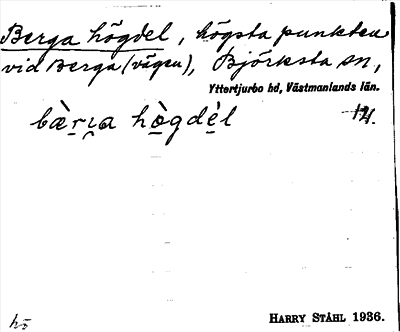 Berga högdel, högsta punkten
vid Berga (vägen), Björksta sn,
Yttertjurbo hd, Västmanlands län.
bæ̀ri̯a hògdél
hö
HARRY STÅHL 1936.